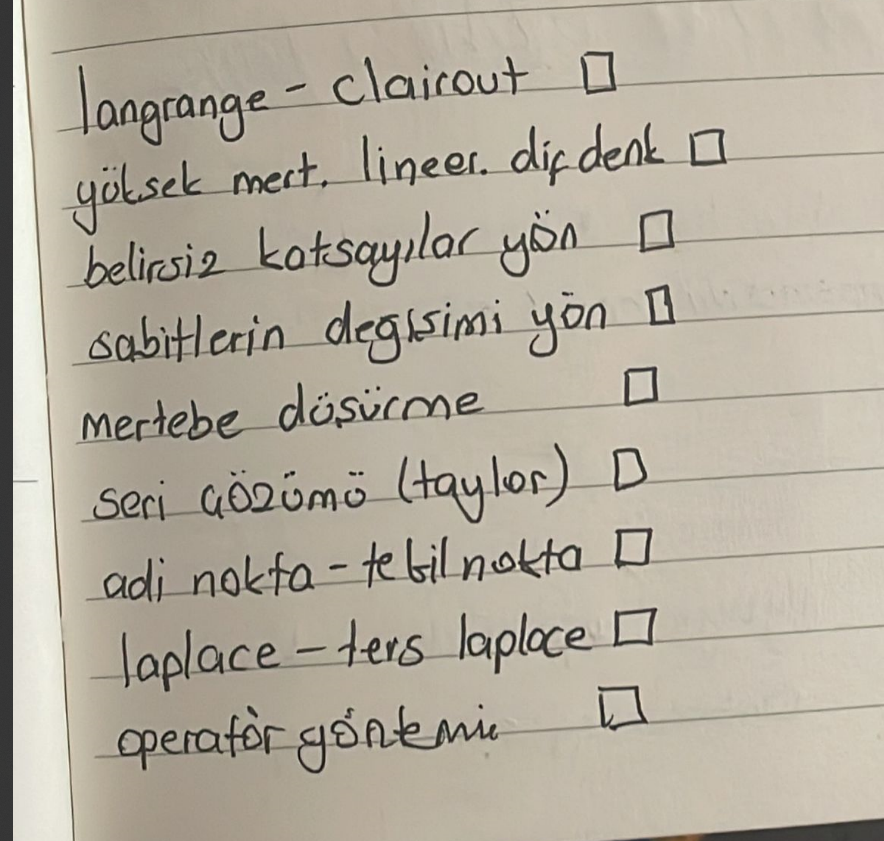 langrange - clairout □
yüksek mert. lineer. dif denk □
belirsiz katsayılar yön □
sabitlerin degisimi yön □
mertebe düşürme □
seri çözümü (taylor) □
adi nokta - tekil nokta □
laplace - ters laplace □
operatör yöntemi □